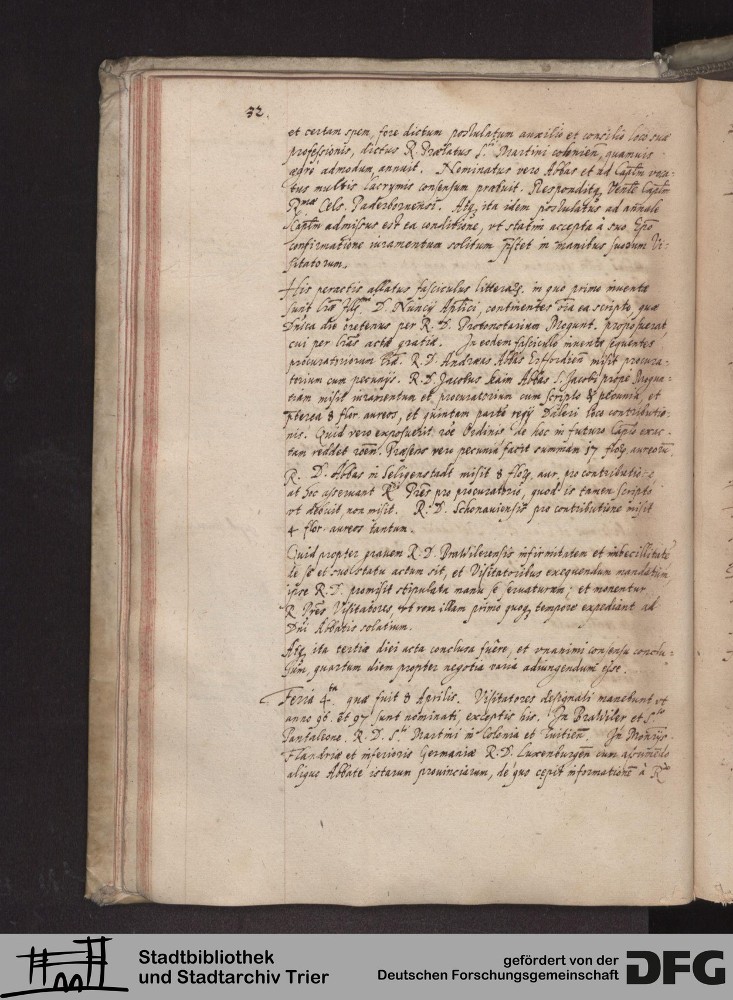 32.
et certam spem, fore dictum postulatum auxilio et consilio loco suæ
professionis, dictus R. Prælatus S.ti Martini colonien. quamuis
ægrè admodum, annuit. Nominatus vero Abbas et ad Captm voca-
tus multis lacrymis consensum præbuit. Respondit
Rmæ Cels. Paderbornensi. Atq; ita idem postulatus ad annale
Captm admissus est ea conditione, vt statim accepta à suo Epo
confirmatione iuramentum solitum pstet in manibus suorum Vi-
sitatorum.
His peractis allatus fasciculus litterarum, in quo primo inuentæ
sunt lræ Illmi D. Nuncij Aplici, continentes oia ea scripto, quæ
die oretenus per R. D. Protonotarium Mogunt. proposuerat
cui per lras actæ gratiæ. In eodem fasciculo inuentæ sequentes
procuratoriorum lræ. R. D. Andreas Abbas Erffordien misit procura-
torium cum pecunijs. R. D. Jacobus Abbas S. Jacobi prope Mogun-
tiam misit iuramentum et procuratorium cum scripto & pecunia, et
pterea 8 flor. aureos, et quintam parte regij Daleri loco contributio-
nis. Quid vero exposuerit Ordinis de hoc in futuro Caplo exac-
tam reddet roem. Præsens vero pecunia facit summam 17 flor. aureorum.
R. D. Abbas in Seligenstadt misit 8 flor. aur. pro contributione
at hoc asseruant Rdi Pres pro procuratorio, quod is tamen scripto
vt debuit non misit. R. D. Schonauiensis pro contributione misit
4 flor. aureos tantum.
Quid propter prauem R. D. Brawilerensis infirmitatem et imbecillitate
de se et suo statu actum sit, et Visitatoribus exequendum mandatum
ipse R. D. promisit stipulata manu se seruaturum; et monentur
R. Pres Visitatores, vt rem illam primo quoq; tempore expediant ad
Dni Abbatis solatium.
Atq; ita tertiæ diei acta conclusa fuère, et vnanimi consensu conclu-
sum, quartum diem propter negotia varia adiungendum esse.
Feria 4ta. quæ fuit 8 Aprilis. Visitatores designati manebunt vt
anno 96. et 97 sunt nominati, exceptis his. In Brawiler et S.to
Pantaleone. R. D. S.ti Martini in Colonia et Tuitien. In Monrijs
Flandriæ et inferioris Germaniæ R. D. Luxenburgen cum assumedo
aliquo Abbate istarum prouinciarum, de quo cepit informatione à Rdo
Stadtbibliothek
und Stadtarchiv Trier
gefördert von der
Deutschen Forschungsgemeinschaft
DFG